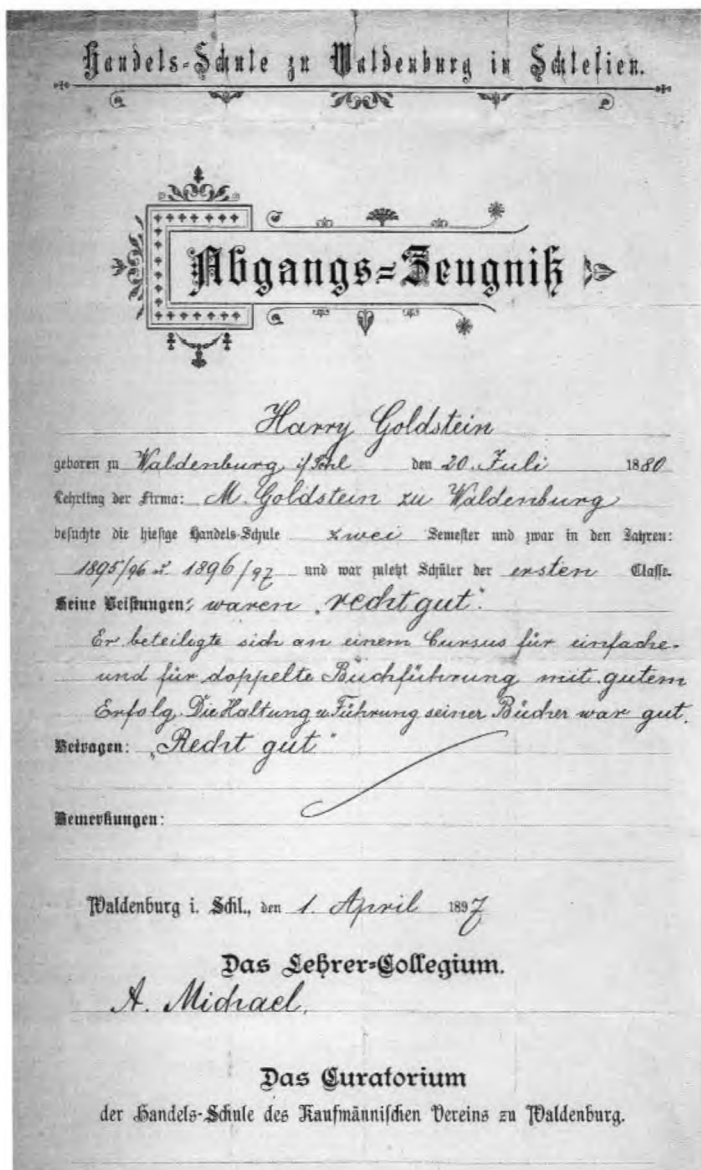 Handels-Schule zu Waldenburg in Schlesien.
Abgangs-Zeugniß
Harry Goldstein
geboren zu Waldenburg i/Schl den 20. Juli 1880
Lehrling der Firma: M. Goldstein zu Waldenburg
besuchte die hiesige Handels-Schule zwei Semester und zwar in den Jahren:
1895/96 u. 1896/97 und war zuletzt Schüler der ersten Classe.
Seine Leistungen: waren „recht gut".
Er beteiligte sich an einem Cursus für einfache-
und für doppelte Buchführung mit gutem
Erfolg. Die Haltung u Führung seiner Bücher war gut.
Betragen: „Recht gut"
Bemerkungen:
Waldenburg i. Schl., den 1. April 1897
Das Lehrer-Collegium.
A. Michael.
Das Curatorium
der Handels-Schule des Kaufmännischen Vereins zu Waldenburg.